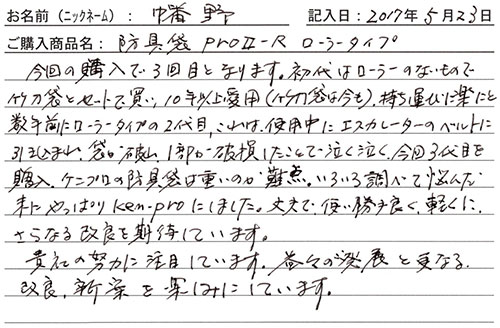 お名前(ニックネーム):幡野 記入日:2017年5月23日
ご購入商品名:防具袋 proII-R ローラータイプ
今回の購入で3回目となります。初代はローラーのないもので
竹刀袋とセットで買い、10年以上愛用(竹刀袋は今も)、持ち運びに楽にと
数年前にローラータイプの2代目、これは、使用中にエスカレーターのベルトに
引き込まれ、袋が破れ、1部が破損したことで泣く泣く、今回3代目を
購入、ケンプロの防具袋は重いのが難点。いろいろ調べて悩んだ
末にやっぱりKen-proにしました。丈夫で、使い勝手良く、軽くに、
さらなる改良を期待しています。
貴社の努力に注目しています。益々の発展と更なる
改良、新案を楽しみにしています。